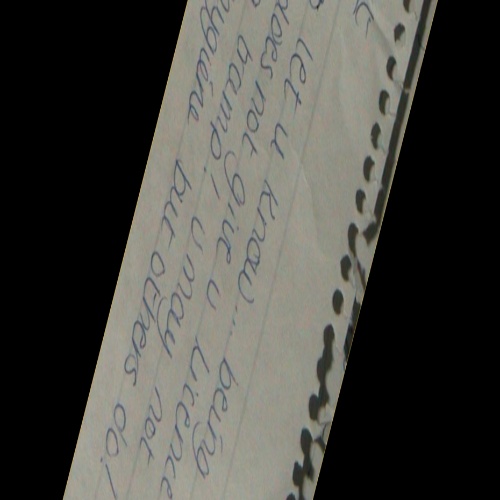 let u know... being
does not give u licence
tramp, u may not
hygiene but others do!